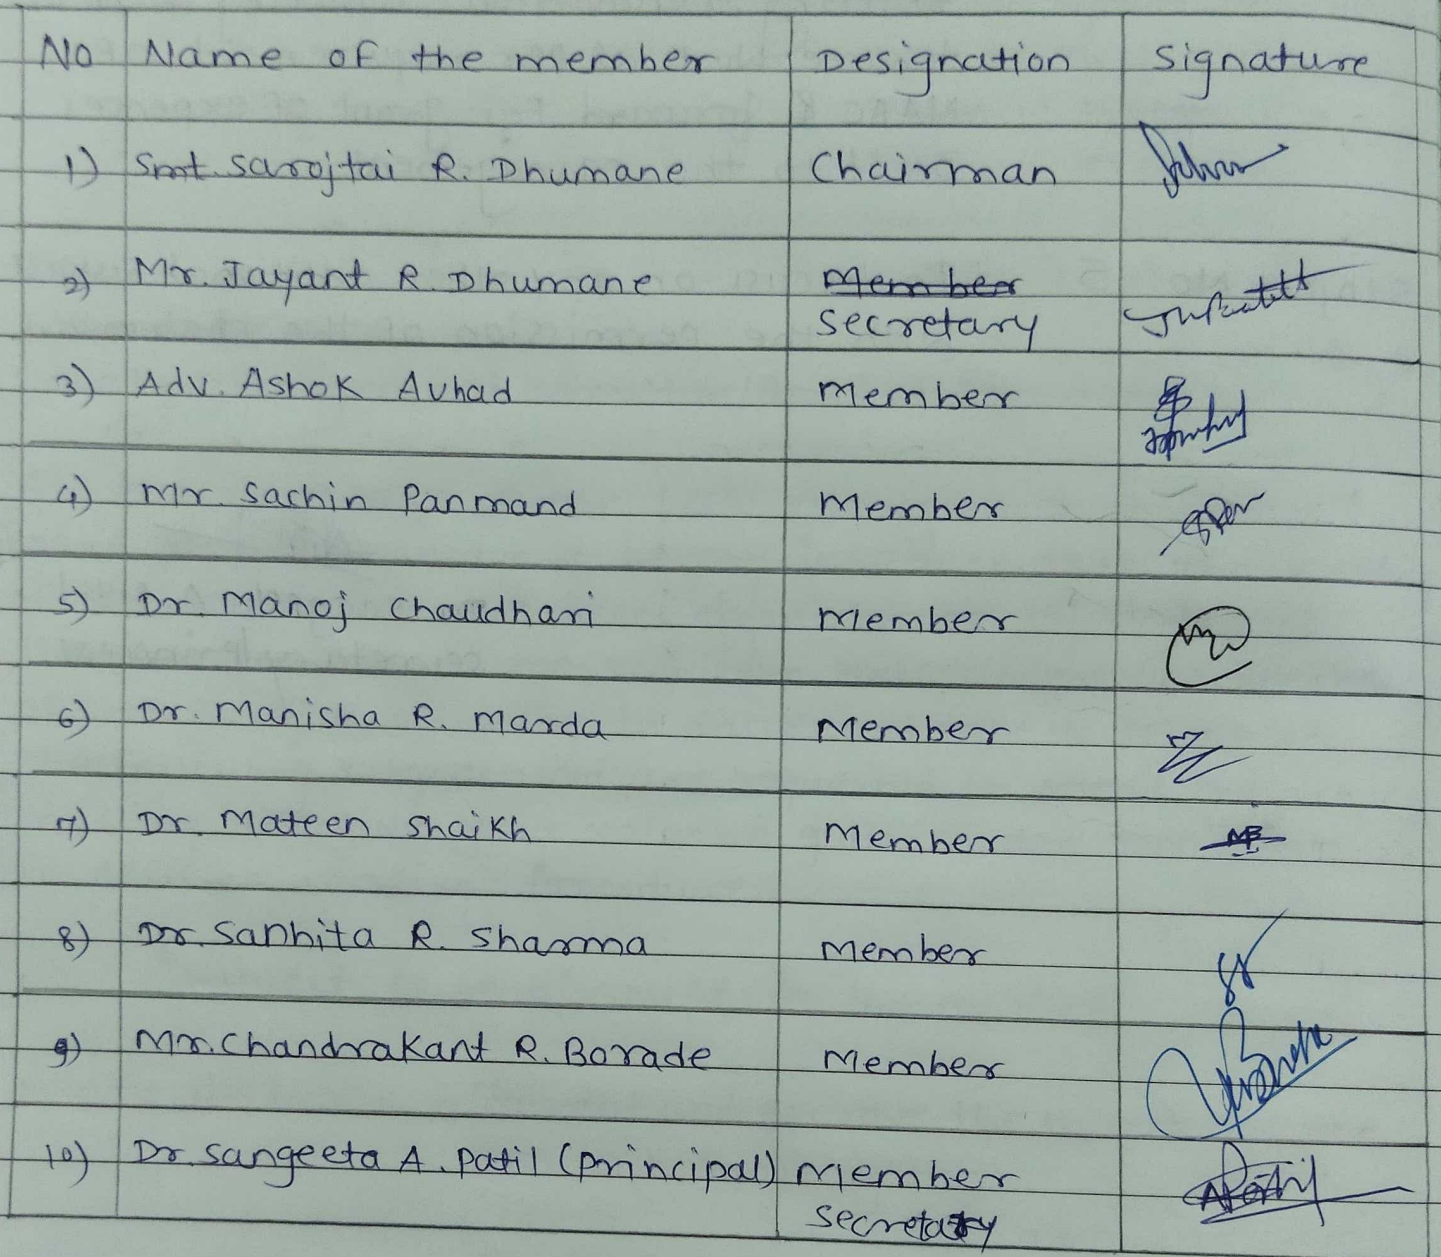 No Name of the member Designation Signature
1) Smt. Sarojtai R. Dhumane Chairman
2) Mr. Jayant R. Dhumane Member
Secretary
3) Adv. Ashok Avhad Member
4) Mr. Sachin Panmand Member
5) Dr. Manoj Chaudhari Member
6) Dr. Manisha R. Marda Member
7) Dr. Mateen Shaikh Member
8) Dr. Sanhita R. Sharma Member
9) Mr. Chandrakant R. Borade Member
10) Dr. Sangeeta A. Patil (Principal) Member
Secretary